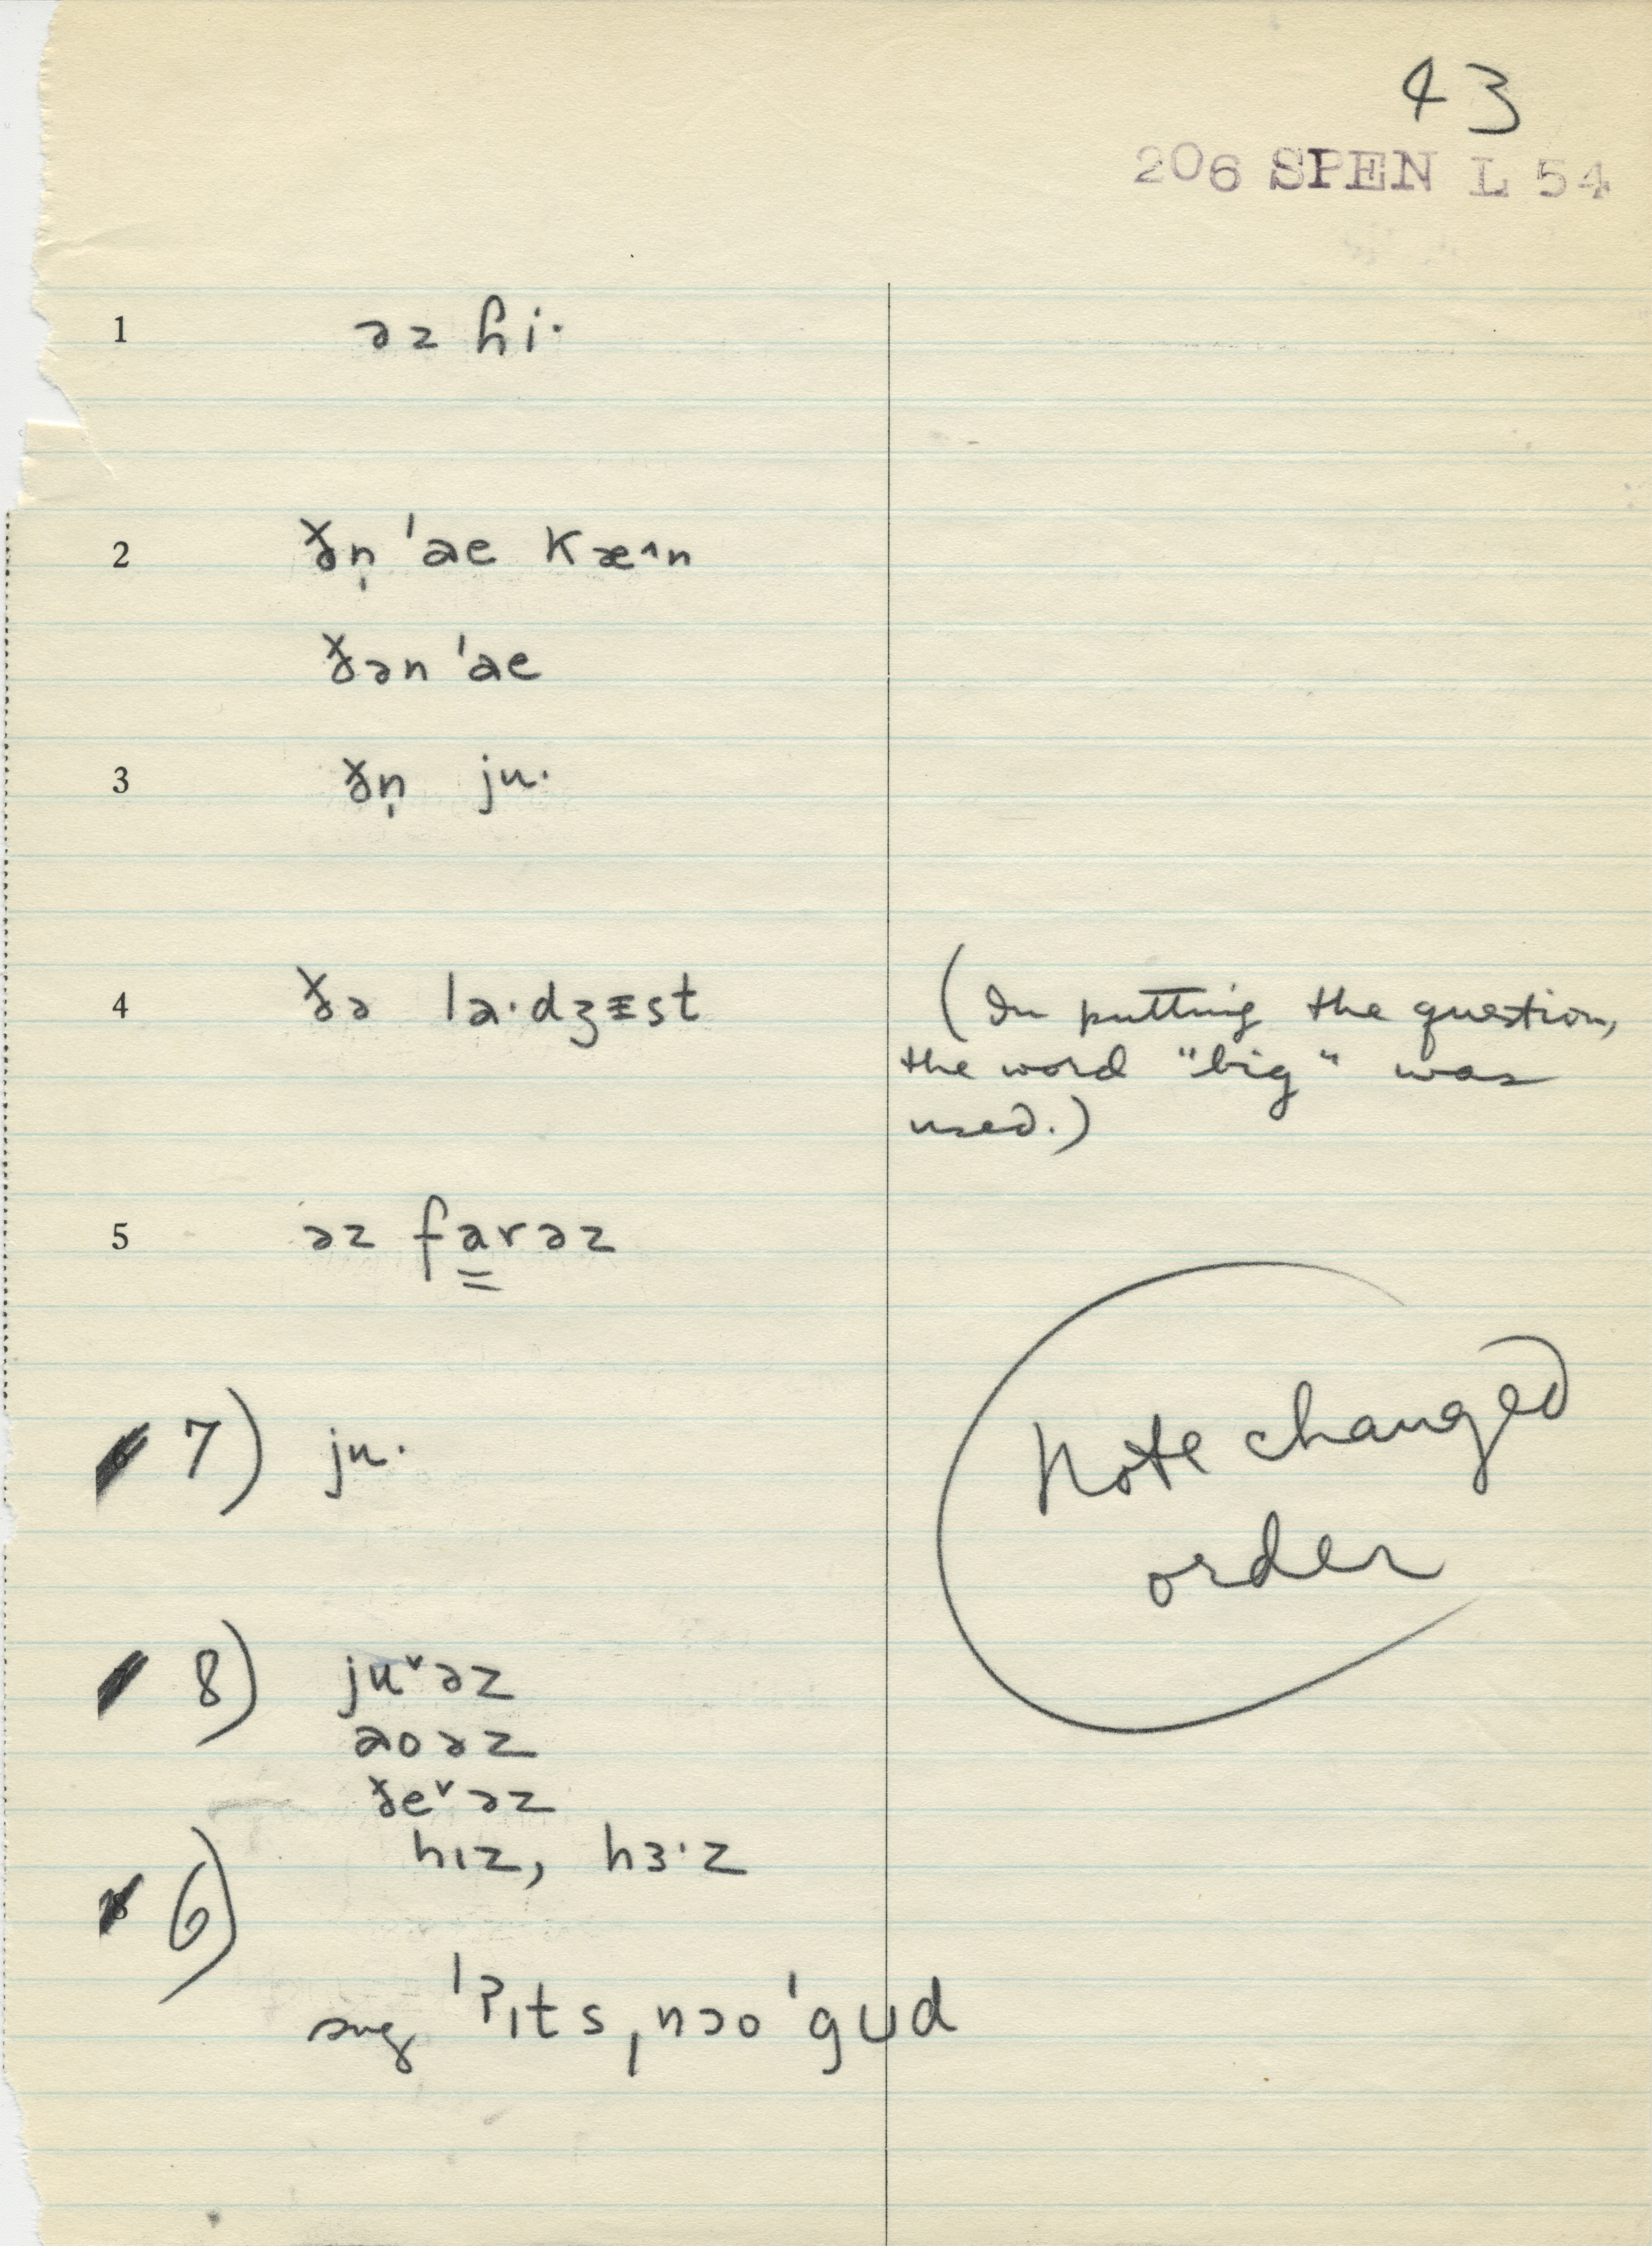 43
206 SPEN L 54
1 əz ɦi·
2 ɣ̶n̩ ˈae kæ^n
ɣ̶ən ˈae
3 ɣ̶n̩ ju·
4 ɣ̶ə la·dʒɪst (In putting the question,
the word "big" was
used.)
5 əz farəz
Note changed
order
7) ju·
8) juˇəz
aoəz
ɣ̶eˇəz
hɪz, hɜ·z
6)
sug ˈʔɪts ˌnɔoˈgud